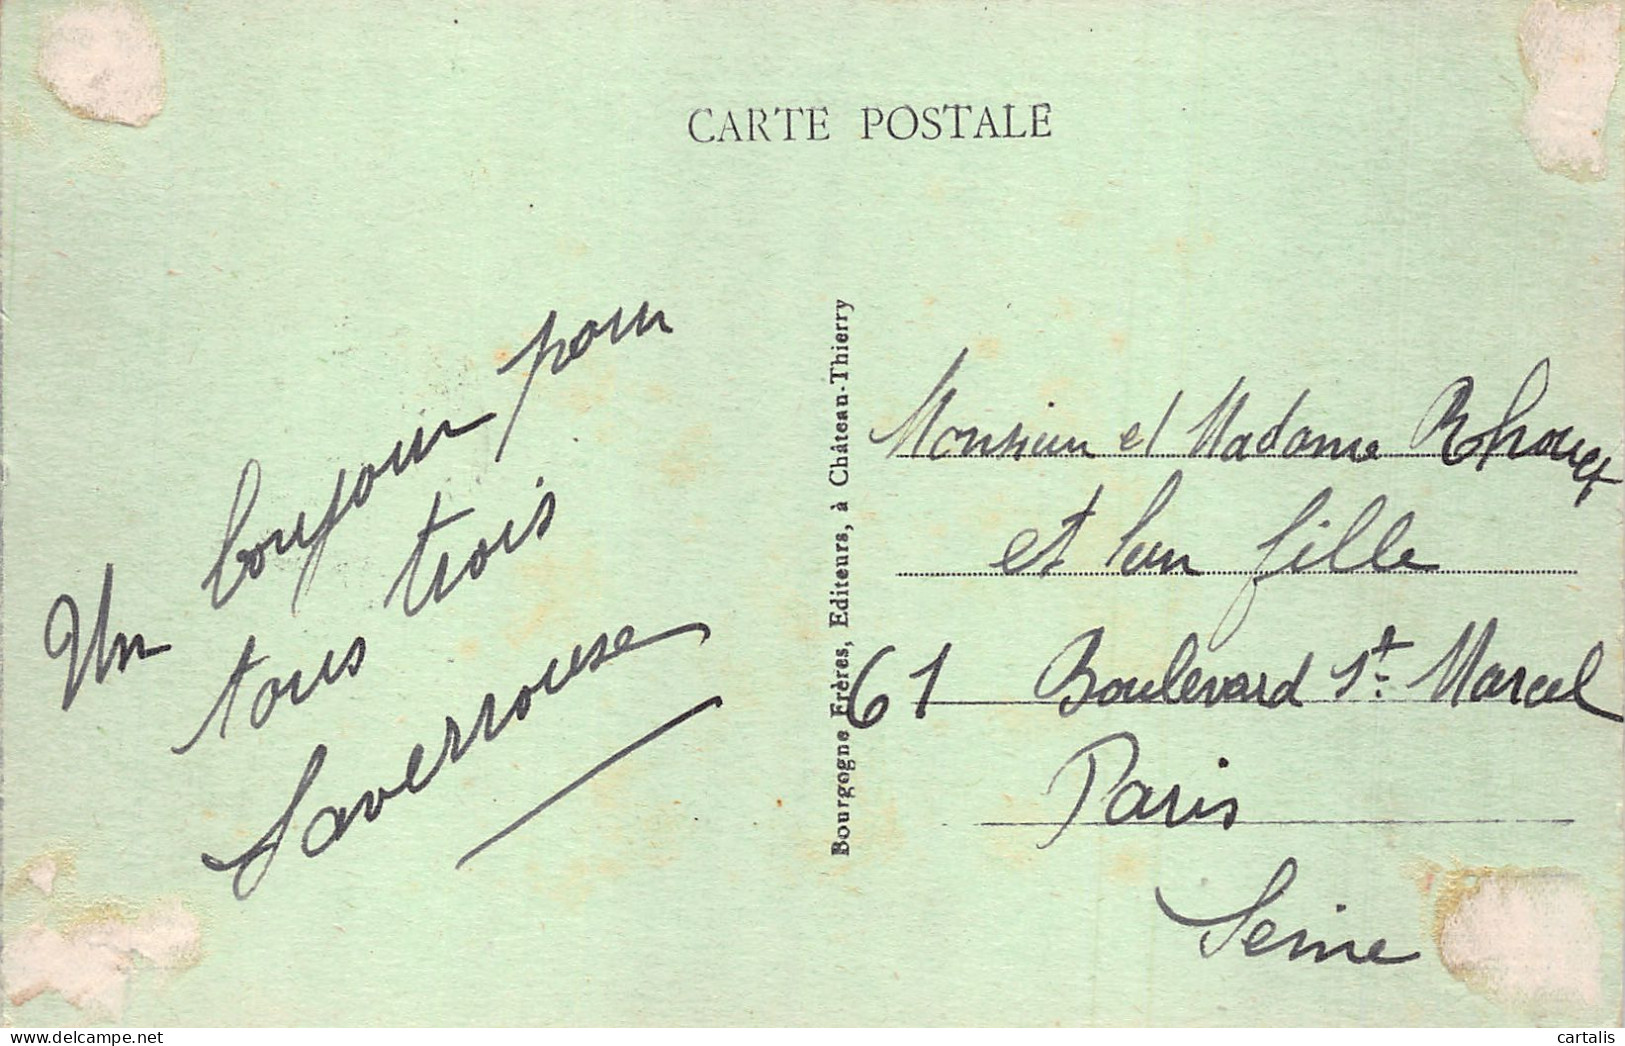 CARTE POSTALE
Un bonjour pour
tous trois
Laverrouse
Bourgogne Frères, Editeurs, à Château-Thierry
Monsieur et Madame
et leur fille
61 Boulevard St Marcel
Paris
Seine
cartalis